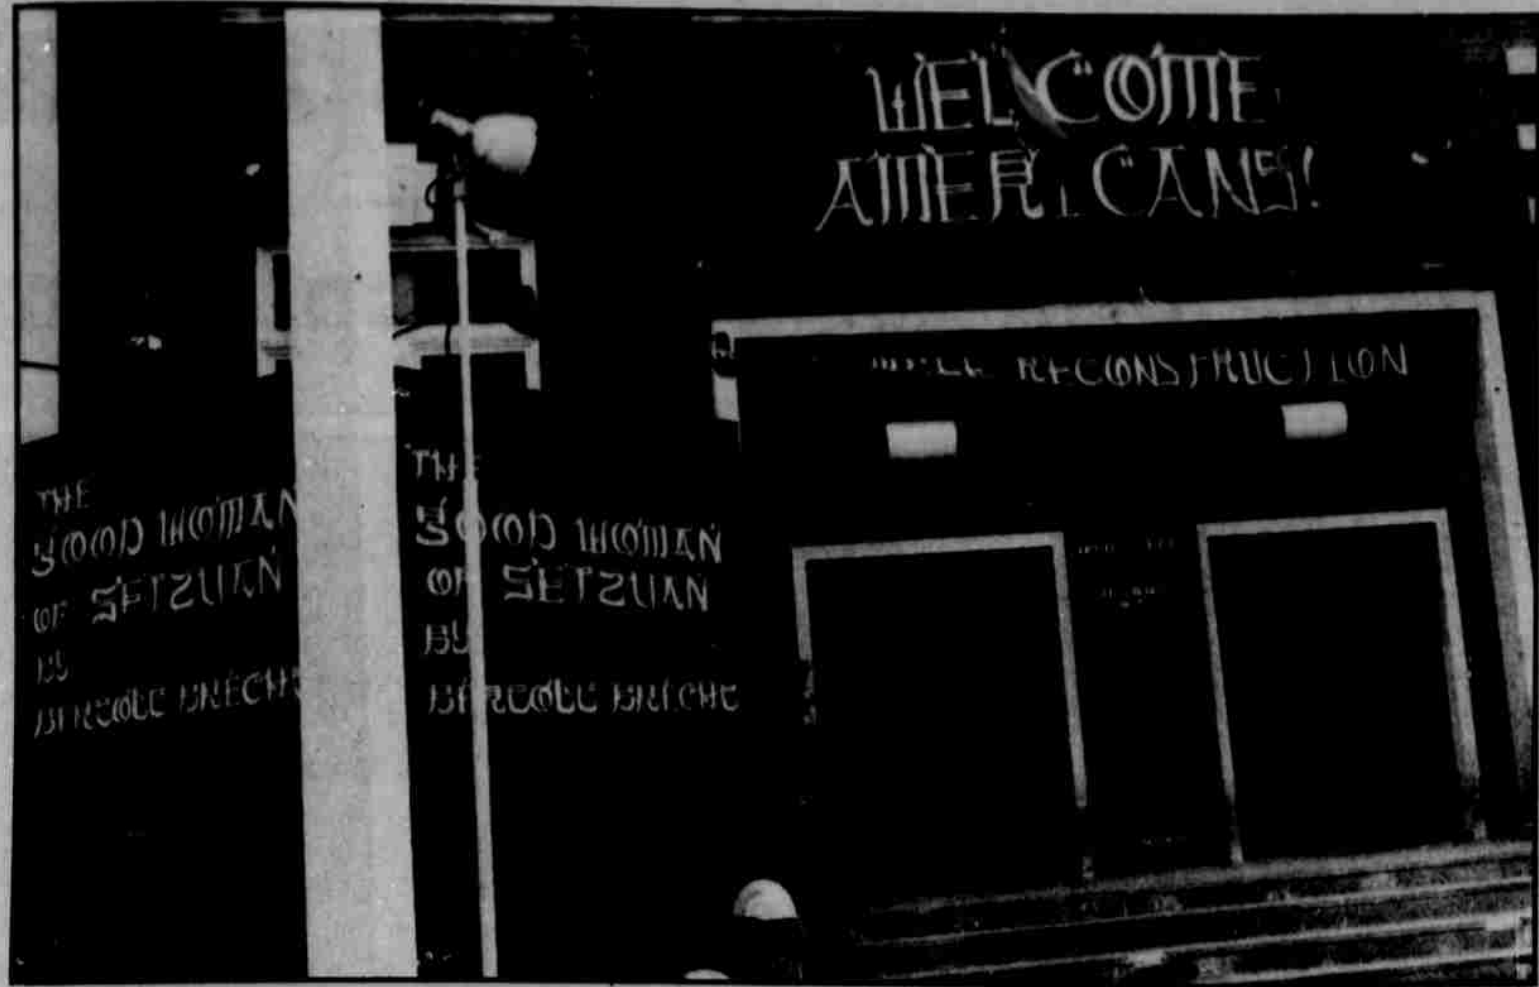 WELCOME
AMERICANS!
RECONSTRUCTION
THE
GOOD WOMAN
OF SETZUAN
BY
BERTOLT BRECHT
THE
GOOD WOMAN
OF SETZUAN
BY
BERTOLT BRECHT